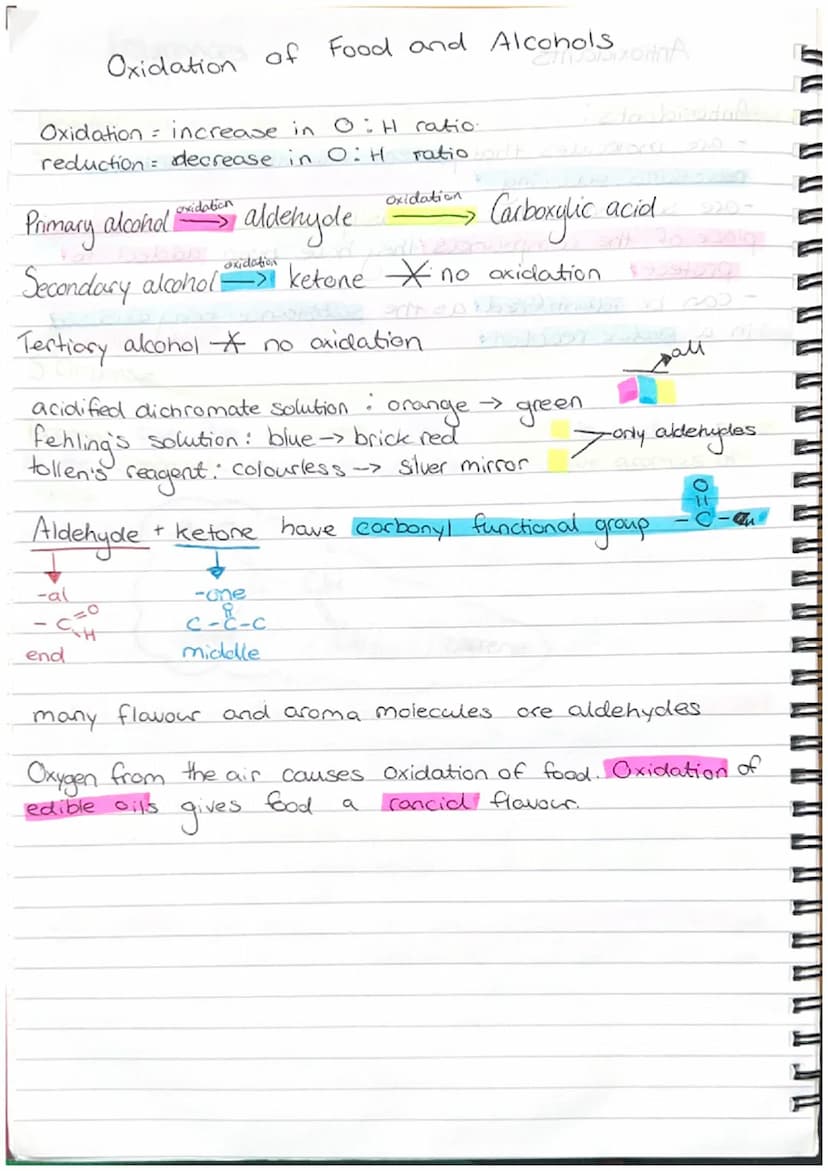 Oxidation of Food and Alcohols
Oxidation = increase in O:H ratio.
reduction = decrease in O:H ratio
Primary alcohol oxidation → aldehyde oxidation → Carboxylic acid
Secondary alcohol oxidation → ketone no oxidation
Tertiary alcohol no oxidation
all
acidified dichromate solution : orange → green
fehling's solution : blue → brick red
only aldehydes
tollen's reagent : colourless → silver mirror
O
Aldehyde + ketone have carbonyl functional group - C -
-al -one
O
- C =O C - C - C
H
end middle
many flavour and aroma molecules are aldehydes
Oxygen from the air causes oxidation of food. Oxidation of
edible oils gives food a rancid flavour.